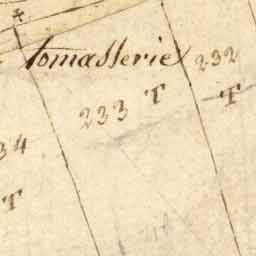 tomasserie
232
T
233 T
34
T